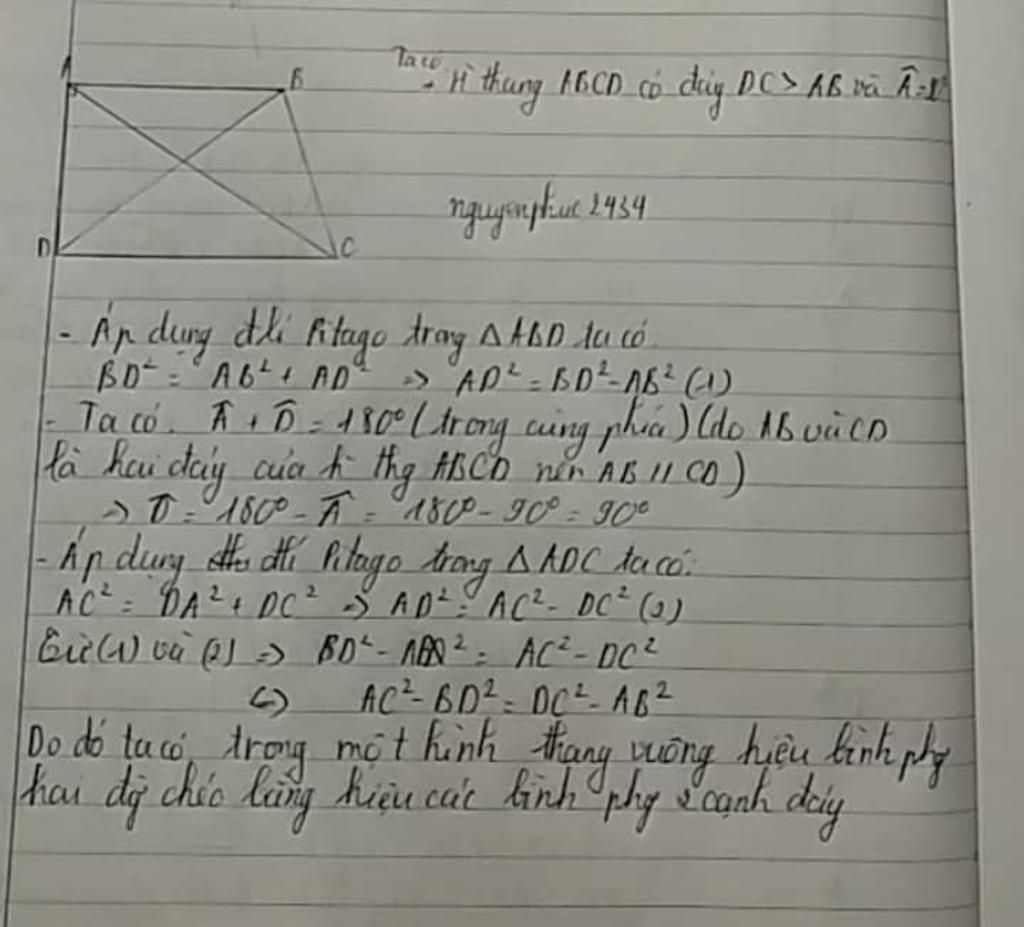 A
B
Ta có
+ H thang ABCD có đáy DC > AB và Â = 1
nguyenphuc2434
D
C
- Áp dụng đlí Pitago trong △ABD ta có
BD² = AB² + AD² => AD² = BD² - AB² (1)
- Ta có. Â + D̂ = 180° (trong cùng phía) (do AB và CD
là hai đáy của h thg ABCD nên AB // CD)
=> D̂ = 180° - Â = 180° - 90° = 90°
- Áp dụng đlí Pitago trong △ADC ta có:
AC² = DA² + DC² => AD² = AC² - DC² (2)
Từ (1) và (2) => BD² - AB² = AC² - DC²
<=> AC² - BD² = DC² - AB²
Do đó ta có, trong một hình thang vuông hiệu bình phg
hai đg chéo bằng hiệu các bình phg 2 cạnh đáy